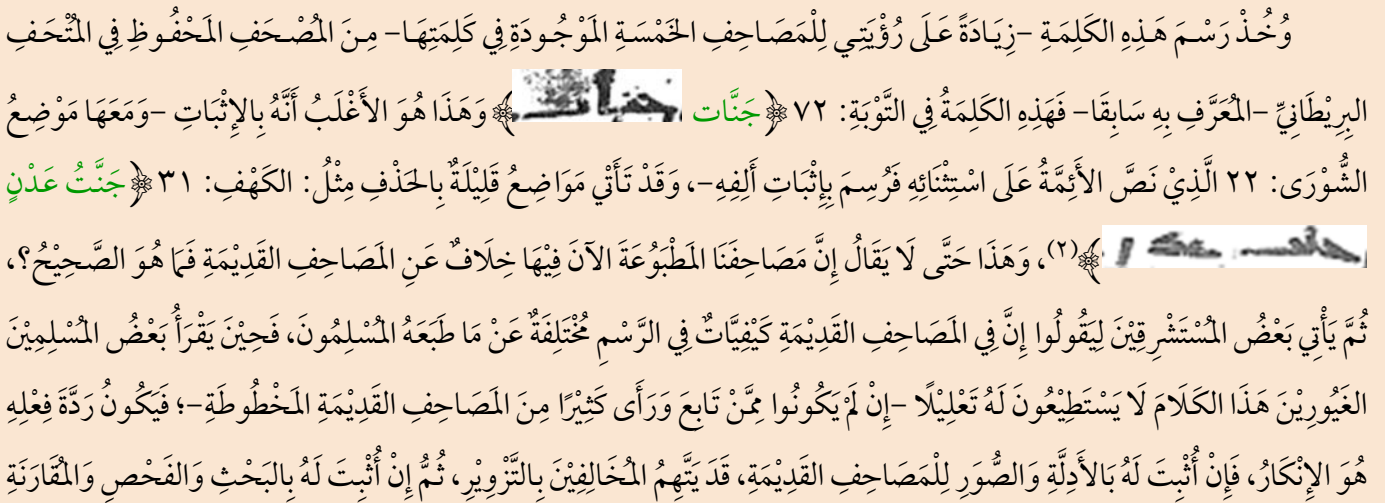 وُخُذْ رَسْمَ هَذِهِ الكَلِمَةِ –زِيَادَةً عَلَى رُؤْيَتِي لِلْمَصَاحِفِ الخَمْسَةِ المَوْجُودَةِ فِي كَلِمَتِهَا– مِنَ المُصْحَفِ المَحْفُوظِ فِي المُتْحَفِ
البِرِيْطَانِيِّ –المُعَرَّفِ بِهِ سَابِقَا– فَهَذِهِ الكَلِمَةُ فِي التَّوْبَةِ: ٧٢ ﴿جَنَّات جنات﴾ وَهَذَا هُوَ الأَغْلَبُ أَنَّهُ بِالإِثْبَاتِ –وَمَعَهَا مَوْضِعُ
الشُّوْرَى: ٢٢ الَّذِيْ نَصَّ الأَئِمَّةُ عَلَى اسْتِثْنَائِهِ فَرُسِمَ بِإِثْبَاتِ أَلِفِهِ–، وَقَدْ تَأْتِي مَوَاضِعُ قَلِيْلَةٌ بِالحَذْفِ مِثْلُ: الكَهْفِ: ٣١ ﴿جَنَّتُ عَدْنٍ
﴾(٢)، وَهَذَا حَتَّى لَا يَقَالُ إِنَّ مَصَاحِفَنَا المَطْبُوعَةَ الآنَ فِيْهَا خِلَافٌ عَنِ المَصَاحِفِ القَدِيْمَةِ فَمَا هُوَ الصَّحِيْحُ؟،
ثُمَّ يَأْتِي بَعْضُ المُسْتَشْرِقِيْنَ لِيَقُولُوا إِنَّ فِي المَصَاحِفِ القَدِيْمَةِ كَيْفِيَّاتٌ فِي الرَّسْمِ مُخْتَلِفَةٌ عَنْ مَا طَبَعَهُ المُسْلِمُونَ، فَحِيْنَ يَقْرَأُ بَعْضُ المُسْلِمِيْنَ
الغَيُورِيْنَ هَذَا الكَلَامَ لَا يَسْتَطِيْعُونَ لَهُ تَعْلِيْلًا –إِنْ لَمْ يَكُونُوا مِمَّنْ تَابَعَ وَرَأَى كَثِيْرًا مِنَ المَصَاحِفِ القَدِيْمَةِ المَخْطُوطَةِ–؛ فَيَكُونُ رَدَّةَ فِعْلِهِ
هُوَ الإِنْكَارُ، فَإِنْ أُثْبِتَ لَهُ بَالأَدِلَّةِ وَالصُّوَرِ لِلْمَصَاحِفِ القَدِيْمَةِ، قَدَ يَتَّهِمُ المُخَالِفِيْنَ بِالتَّزْوِيْرِ، ثُمُّ إِنْ أُثْبِتَ لَهُ بِالبَحْثِ وَالفَحْصِ وَالمُقَارَنَةِ